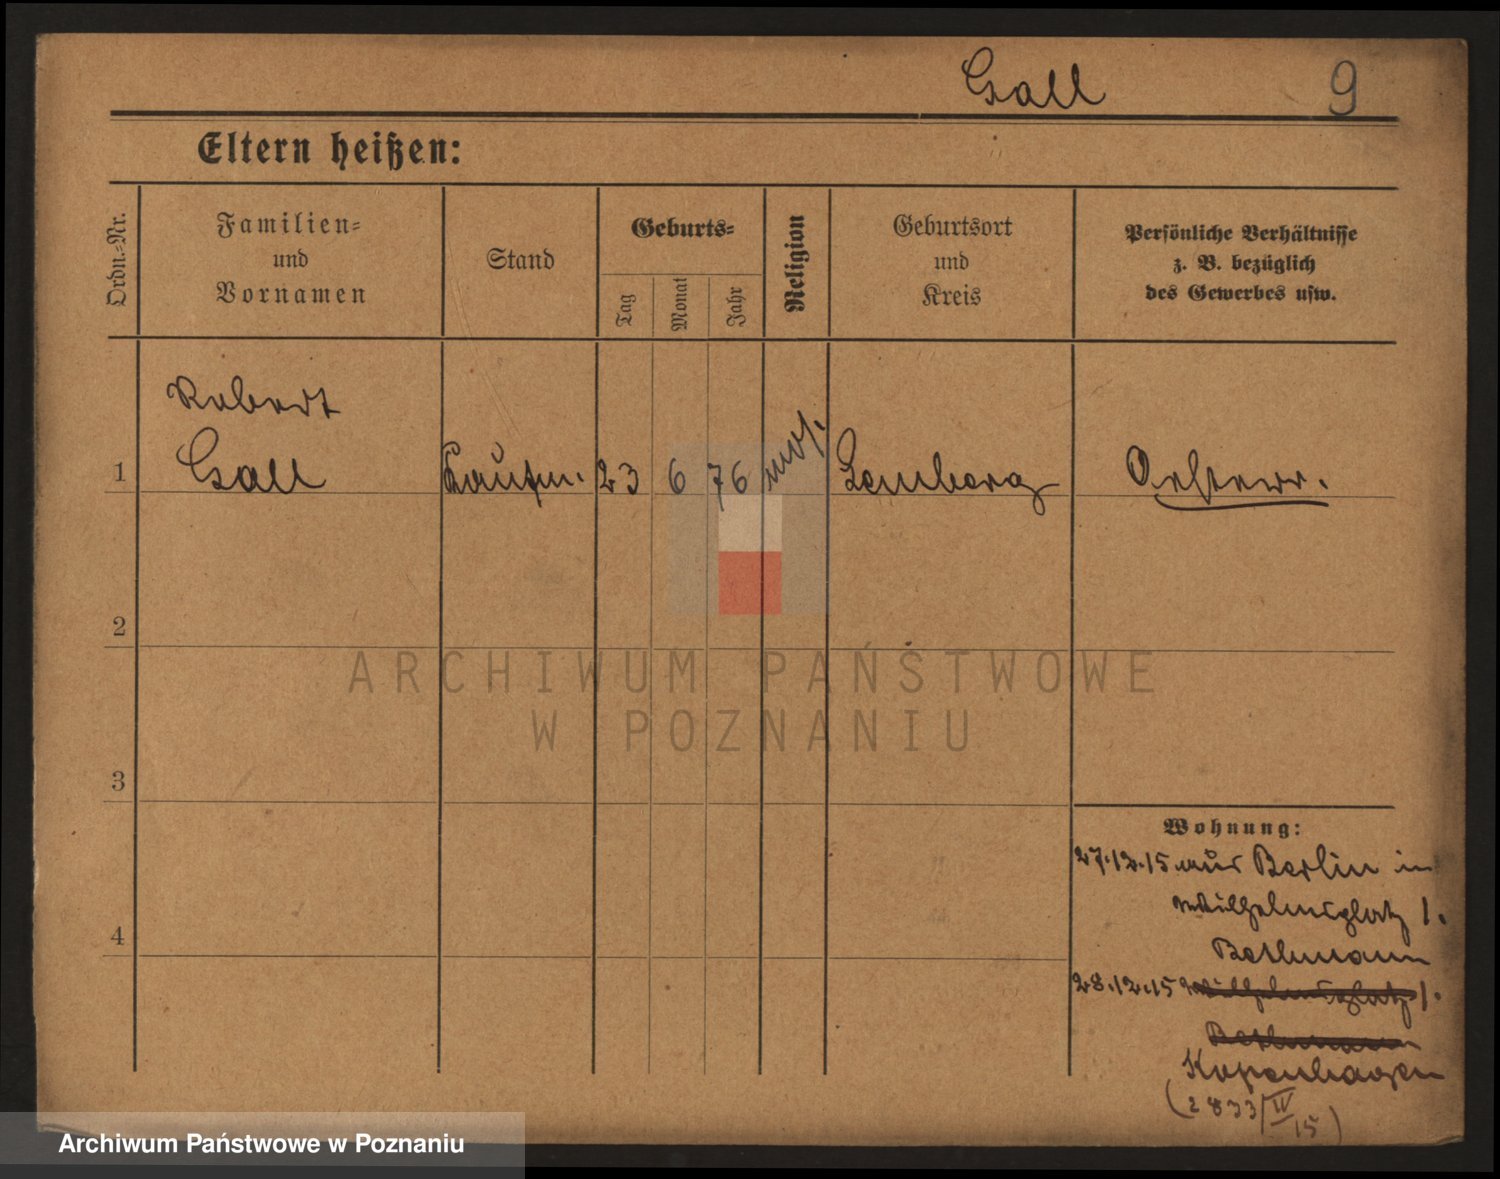 Gall 9
Eltern heißen:
Ordn.-Nr.
Familien-
und
Vornamen
Stand
Geburts-
Tag
Monat
Jahr
Religion
Geburtsort
und
Kreis
Persönliche Verhältnisse
z. B. bezüglich
des Gewerbes usw.
Robert
1 Gall Kaufm. 23 6 76 mos. Lemberg Oesterr.
2
3
4
ARCHIWUM PAŃSTWOWE
W POZNANIU
Wohnung:
27.12.15 aus Berlin in
Wilhelmsplatz 1.
Bethmann
28.12.15 Wilhelmsplatz 1.
Bethmann
Kopenhagen
(2833/IV
15)
Archiwum Państwowe w Poznaniu